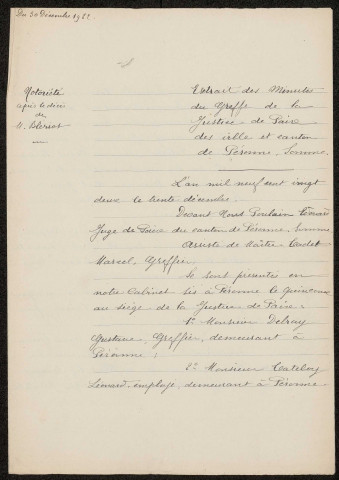 Du 30 Décembre 1922
Notoriété
après le décès
de
M. Blériot
Extrait des Minutes
du Greffe de la
Justice de Paix
des ville et canton
de Péronne, Somme.
L'an mil neuf cent vingt
deux le trente décembre.
Devant Nous Poulain
Juge de Paix du canton de Péronne, Somme
Assisté de Maître Cadet
Marcel, Greffier.
Se sont présentés en
notre Cabinet sis à Péronne le
au siège de la Justice de Paix:
1° Monsieur Delray
Gustave, Greffier, demeurant à
Péronne;
2° Monsieur
Léonard, employé, demeurant à Péronne